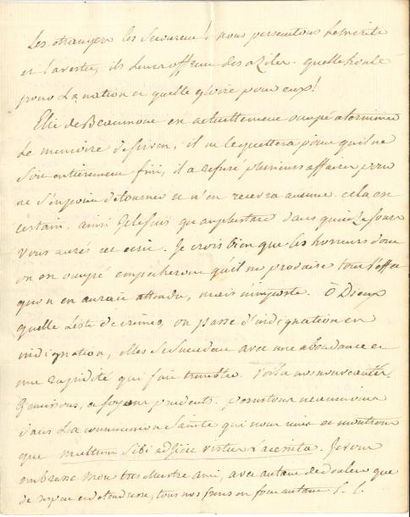 les etrangers les secourent! nous persecutons le merite
et la vertu, ils leur offrent des aziles. quelle honte
pour la nation et quelle gloire pour eux!
Elie de Beaumont est actuellement occupé a terminer
le memoire de sirven, il ne le quittera point qu'il ne
soit entierement fini, il a refusé plusieurs affaires pour
ne s'en point detourner et n'en recevra aucune cela est
certain. ainsi je lesuis qu'au plus tard dans quinze jours
vous aurés cet ecrit. Je crois bien que les horreurs dont
on est occupé empecheront qu'il ne produise tout l'effet
qu'on en auroit attendu, mais n'importe. Ô Dieux
quelle liste de crimes, on passe d'indignation en
indignation, elles se succedent avec une abondance et
une rapidité qui fait trembler. Voila nos nouveautés,
gemissons, et soyons prudents. persistons neanmoins
dans la communion sainte qui nous unit et montrons
que multum sibi adjicit virtus lacessita. Je vous
embrasse mon tres illustre ami, avec autant de douleur que
de et de tendresse, tous nos freres en font autant